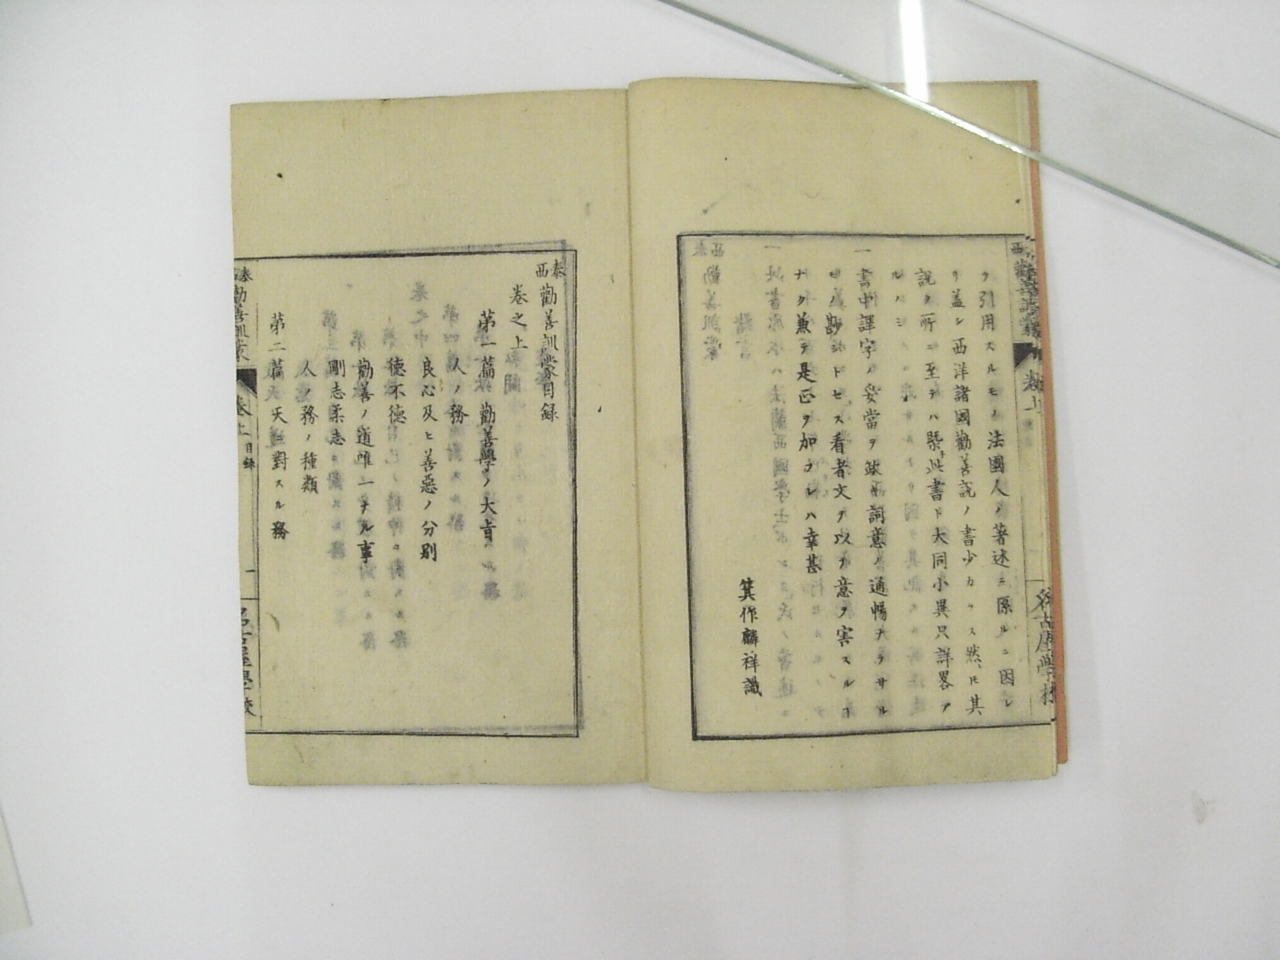 ヲ引用スルモノ法國人ノ著述ニ係ルニ因レ
リ蓋シ西洋諸國勸善説ノ書少カラス然𪜈其
説ク所ニ至テハ槩子此書ト大同小異只詳畧ア
ルハミ
一書中譯字ノ妥當ヲ詞意ノ通暢ナラサル
モノ尠シトセス看者文ヲ以テ意ヲ害スルヿ
ナク兼テ是正ヲ加ナレハ幸甚
箕作麟祥識
泰西勸善訓蒙目録
巻之上
第一篇 勸善學ノ大旨
人ノ務
良心及ヒ善惡ノ分別
徳不徳
勸善ノ道唯一ナル事
剛志柔志
人ノ務ノ種類
第二篇 天ニ對スル務
泰西勸善訓蒙 巻上 目録 一 名古屋學校